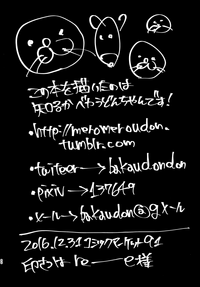 この本を描いたのは
べろうどんちゃんです!
・http://meromeroudon.
tumblr.com
・twitter→bakaudondon
・pixiv→137649
・メール→bakaudon@gメール
2016.12.31 コミックマーケット91
印刷は re——e様